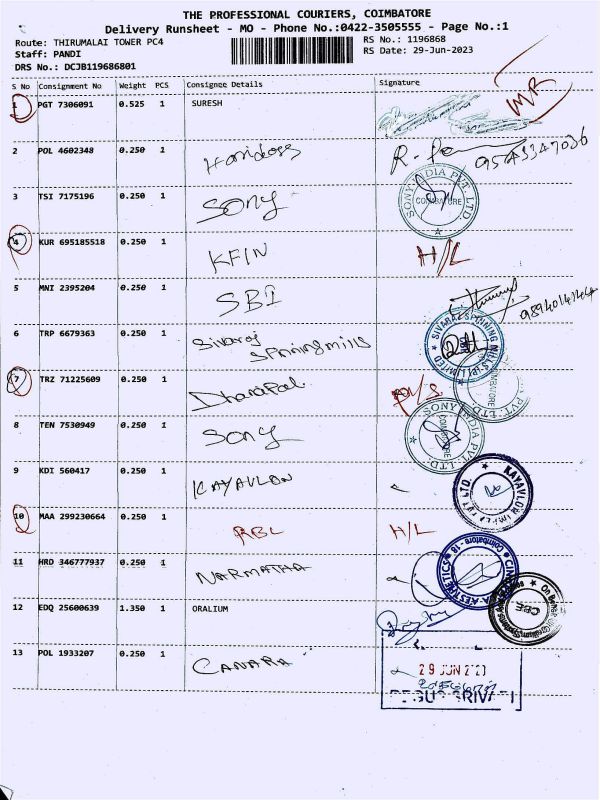 THE PROFESSIONAL COURIERS, COIMBATORE
Delivery Runsheet - MO - Phone No.:0422-3505555 - Page No.:1
Route: THIRUMALAI TOWER PC4
RS No.: 1196868
Staff: PANDI
RS Date: 29-Jun-2023
DRS No.: DCJB119686801
S No Consignment No Weight PCS Consignee Details Signature
1 PGT 7306091 0.525 1 SURESH MR
2 POL 4602348 0.250 1 Haridoss
3 TSI 7175196 0.250 1 Sony
SONY INDIA PVT. LTD. COIMBATORE
4 KUR 695185518 0.250 1 KFIN H/L
5 MNI 2395204 0.250 1 SBI
6 TRP 6679363 0.250 1 Sivaraj Spinning mills
SIVARAJ SPINNING MILLS (P) LIMITED
7 TRZ 71225609 0.250 1 Dharapal
8 TEN 7530949 0.250 1 Sony
SONY INDIA PVT. LTD. COIMBATORE
9 KDI 560417 0.250 1 KAYAVLON
KAYAVLON PVT LTD.
10 MAA 299230664 0.250 1 RBL H/L
11 HRD 346777937 0.250 1 NARMATHA
Coimbatore - 18
12 EDQ 25600639 1.350 1 ORALIUM
CBE
13 POL 1933207 0.250 1 CANARA
29 JUN